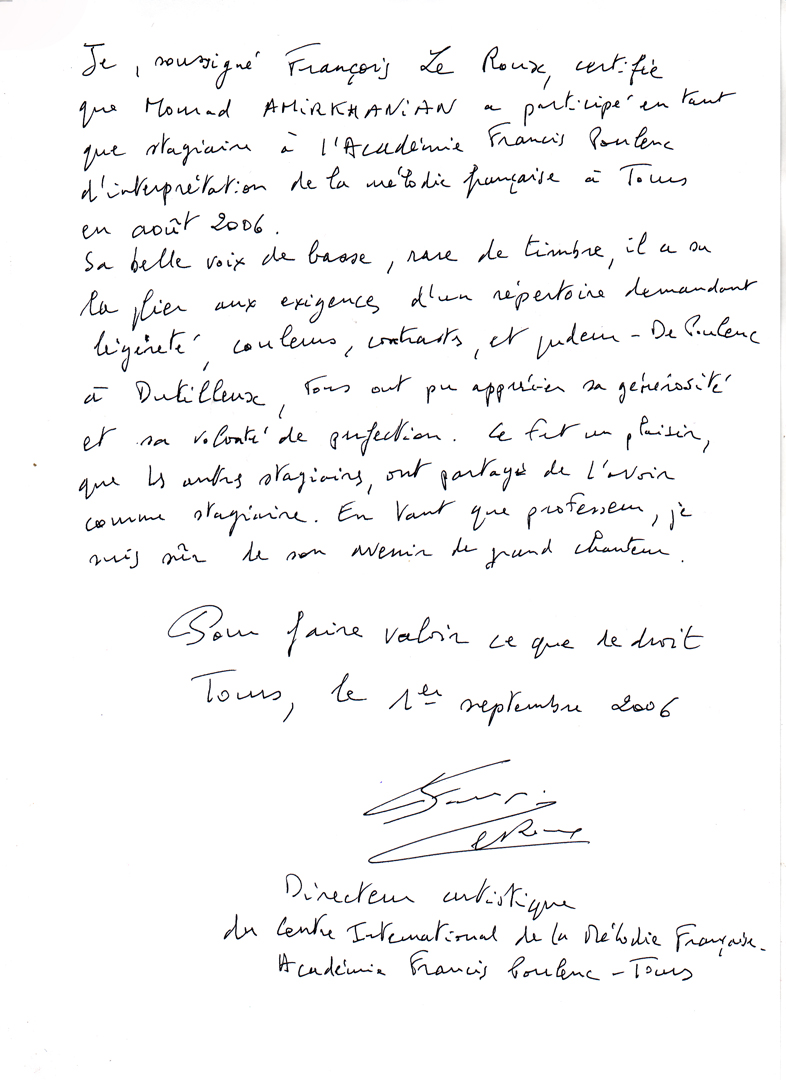 Je, soussigné François Le Roux, certifie
que Mourad AMIRKHANIAN a participé en tant
que stagiaire à l'Académie Francis Poulenc
d'interprétation de la mélodie française à Tours
en août 2006.
Sa belle voix de basse, rare de timbre, il a su
la plier aux exigences d'un répertoire demandant
légèreté, couleurs, contrastes, et pudeur - De Poulenc
à Dutilleux, tous ont pu apprécier sa générosité
et sa volonté de perfection. Ce fut un plaisir,
que les autres stagiaires, ont partagé de l'avoir
comme stagiaire. En tant que professeur, je
suis sûr de son avenir de grand chanteur.
Pour faire valoir ce que de droit
Tours, le 1er septembre 2006
François
Le Roux
Directeur artistique
du Centre International de la Mélodie Française.
Académie Francis Poulenc - Tours